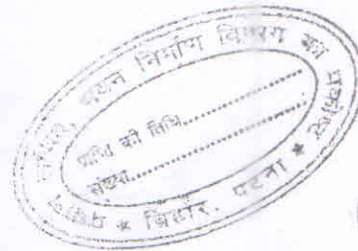 सचिव, भवन निर्माण विभाग का प्रकोष्ठ
प्राप्ति की तिथि....................
संख्या....................
* बिहार, पटना *